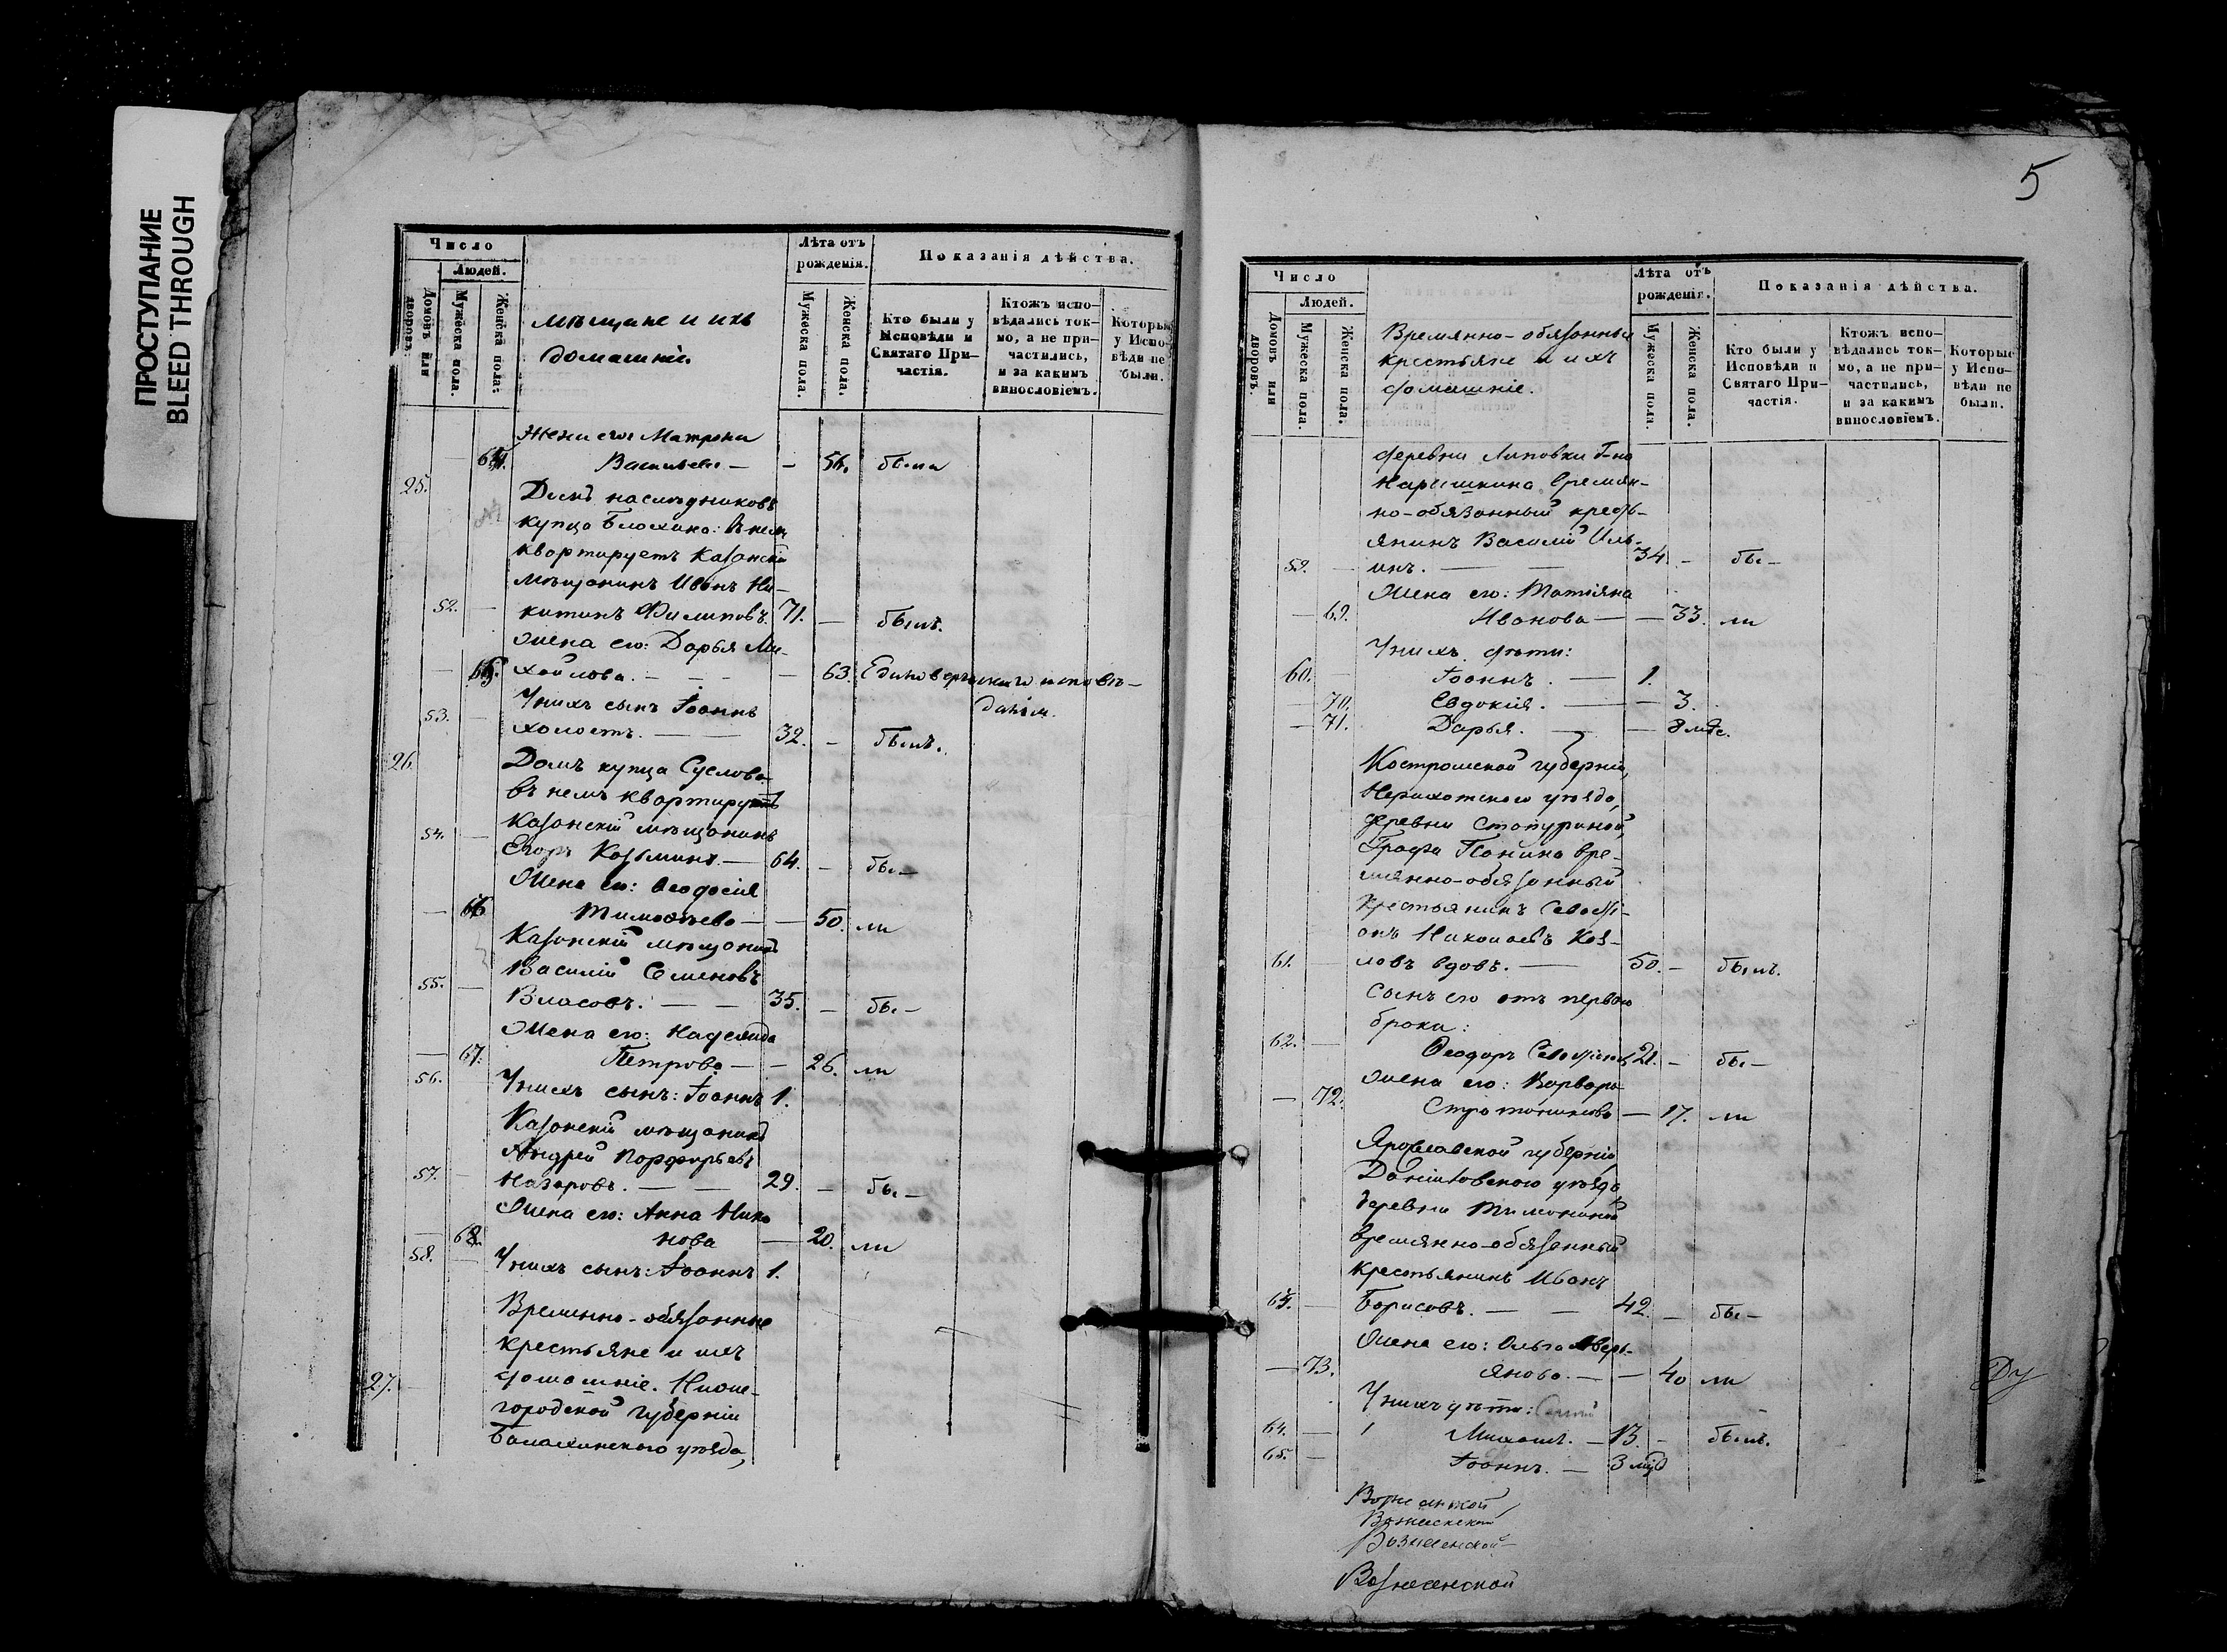 ПРОСТУПАНИЕ
BLEED THROUGH
Число
Людей.
Домовъ или дворовъ.
Мужеска пола.
Женска пола.
Мѣщане и ихъ
домашніе.
Лѣта отъ
рожденія.
Мужеска пола.
Женска пола.
Показанія дѣйства.
Кто были у
Исповѣди и
Святаго При-
частія.
Ктожъ испо-
вѣдались ток-
мо, а не при-
частились,
и за какимъ
винословіемъ.
Которые
у Испо-
вѣди не
были.
Жена его Матрона
Васильева — — были
25.
Домъ наслѣдниковъ
купца Блохина: В нем
квартируетъ Казанскій
мѣщанинъ Иванъ Ни-
52. — китинъ Филиповъ. 71. — былъ.
Жена его: Дарья Ми-
— хайлова. — — — 63. Единовѣрческаго исповѣ-
данія.
У нихъ сынъ Іоаннъ
53. — холостъ. — — 32. — былъ.
26.
Домъ купца Суслова
въ немъ квартируетъ
54. — Казанскій мѣщанинъ
Егоръ Козьминъ. — 64. — бы —
Жена его: Ѳеодосія
— 66 Тимоѳѣева — — 50. ли
Казанскій мѣщанинъ
Василій Семеновъ
55. — Власовъ. — — 35. — бы —
Жена его: Надежда
— 67. Петрова — — 26. ли
56. У нихъ сынъ: Іоаннъ 1.
Казанскій мѣщанинъ
Андрей Порфирьевъ
57. — Назаровъ. — — 29. — бы —
Жена его: Анна Нико
— 68. нова — 20. ли
58. — У нихъ сынъ: Іоаннъ 1.
Временно-обязанные
крестьяне и ихъ
27. — домашніе. Ниже-
городской губерніи
Балахнинскаго уѣзда,
5
Число
Людей.
Домовъ или дворовъ.
Мужеска пола.
Женска пола.
Времянно-обязанные
крестьяне и ихъ
домашніе.
Лѣта отъ
рожденія.
Мужеска пола.
Женска пола.
Показанія дѣйства.
Кто были у
Исповѣди и
Святаго При-
частія.
Ктожъ испо-
вѣдались ток-
мо, а не при-
частились,
и за какимъ
винословіемъ.
Которые
у Испо-
вѣди не
были.
деревни Липовки Г-на
Нарышкина времян-
но-обязанный кресть-
янинъ Василій Иль-
59. — инъ. — — 34 — бы —
Жена его: Татіяна
— 69. Иванова — — 33. ли
У нихъ дѣти:
60. — Іоаннъ. — 1.
— 70. Евдокія. — — 3.
— 71. Дарья. — — 8 мѣс.
Костромской губерніи,
Нерехотскаго уѣзда,
деревни Стопуриной,
Графа Панина вре-
мянно-обязанный
Крестьянинъ Севасті-
анъ Николаевъ Коз-
61. — ловъ вдовъ. — 50. — былъ.
Сынъ его отъ перваго
брака:
62. — Ѳеодоръ 21. — бы —
Жена его: Варвара
— 72. Стратоникова — 17. ли
Ярославской губерніи,
Даниловскаго уѣзда
деревни Тимониной
времянно-обязанный
крестьянинъ Иванъ
63. — Борисовъ. — — 42. — бы —
Жена его: Ольга Аверь-
— 73. янова. — — 40 ли
У нихъ дѣти:
64. — Михаилъ. — 13. — былъ.
65. — Іоаннъ. — 3
Вознесенской
Вознесенской
Вознесенской
Вознесенской
Ду